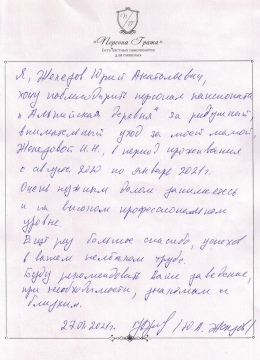 «Персона Грата»
Я, Жендов Юрий Анатольевич,
хочу поблагодарить персонал пансионата
"Альпийская деревня" за радушный,
внимательный уход за моей мамой,
И.Н., в период проживания
с август 2020 по январь 2021г.
Очень нужным делом занимаетесь
и на высоком профессиональном
уровне.
Ещё раз большое спасибо, успехов
в вашем нелёгком труде.
Буду рекомендовать Ваше заведение,
при необходимости, знакомым и
близким.
27.01.2021г.